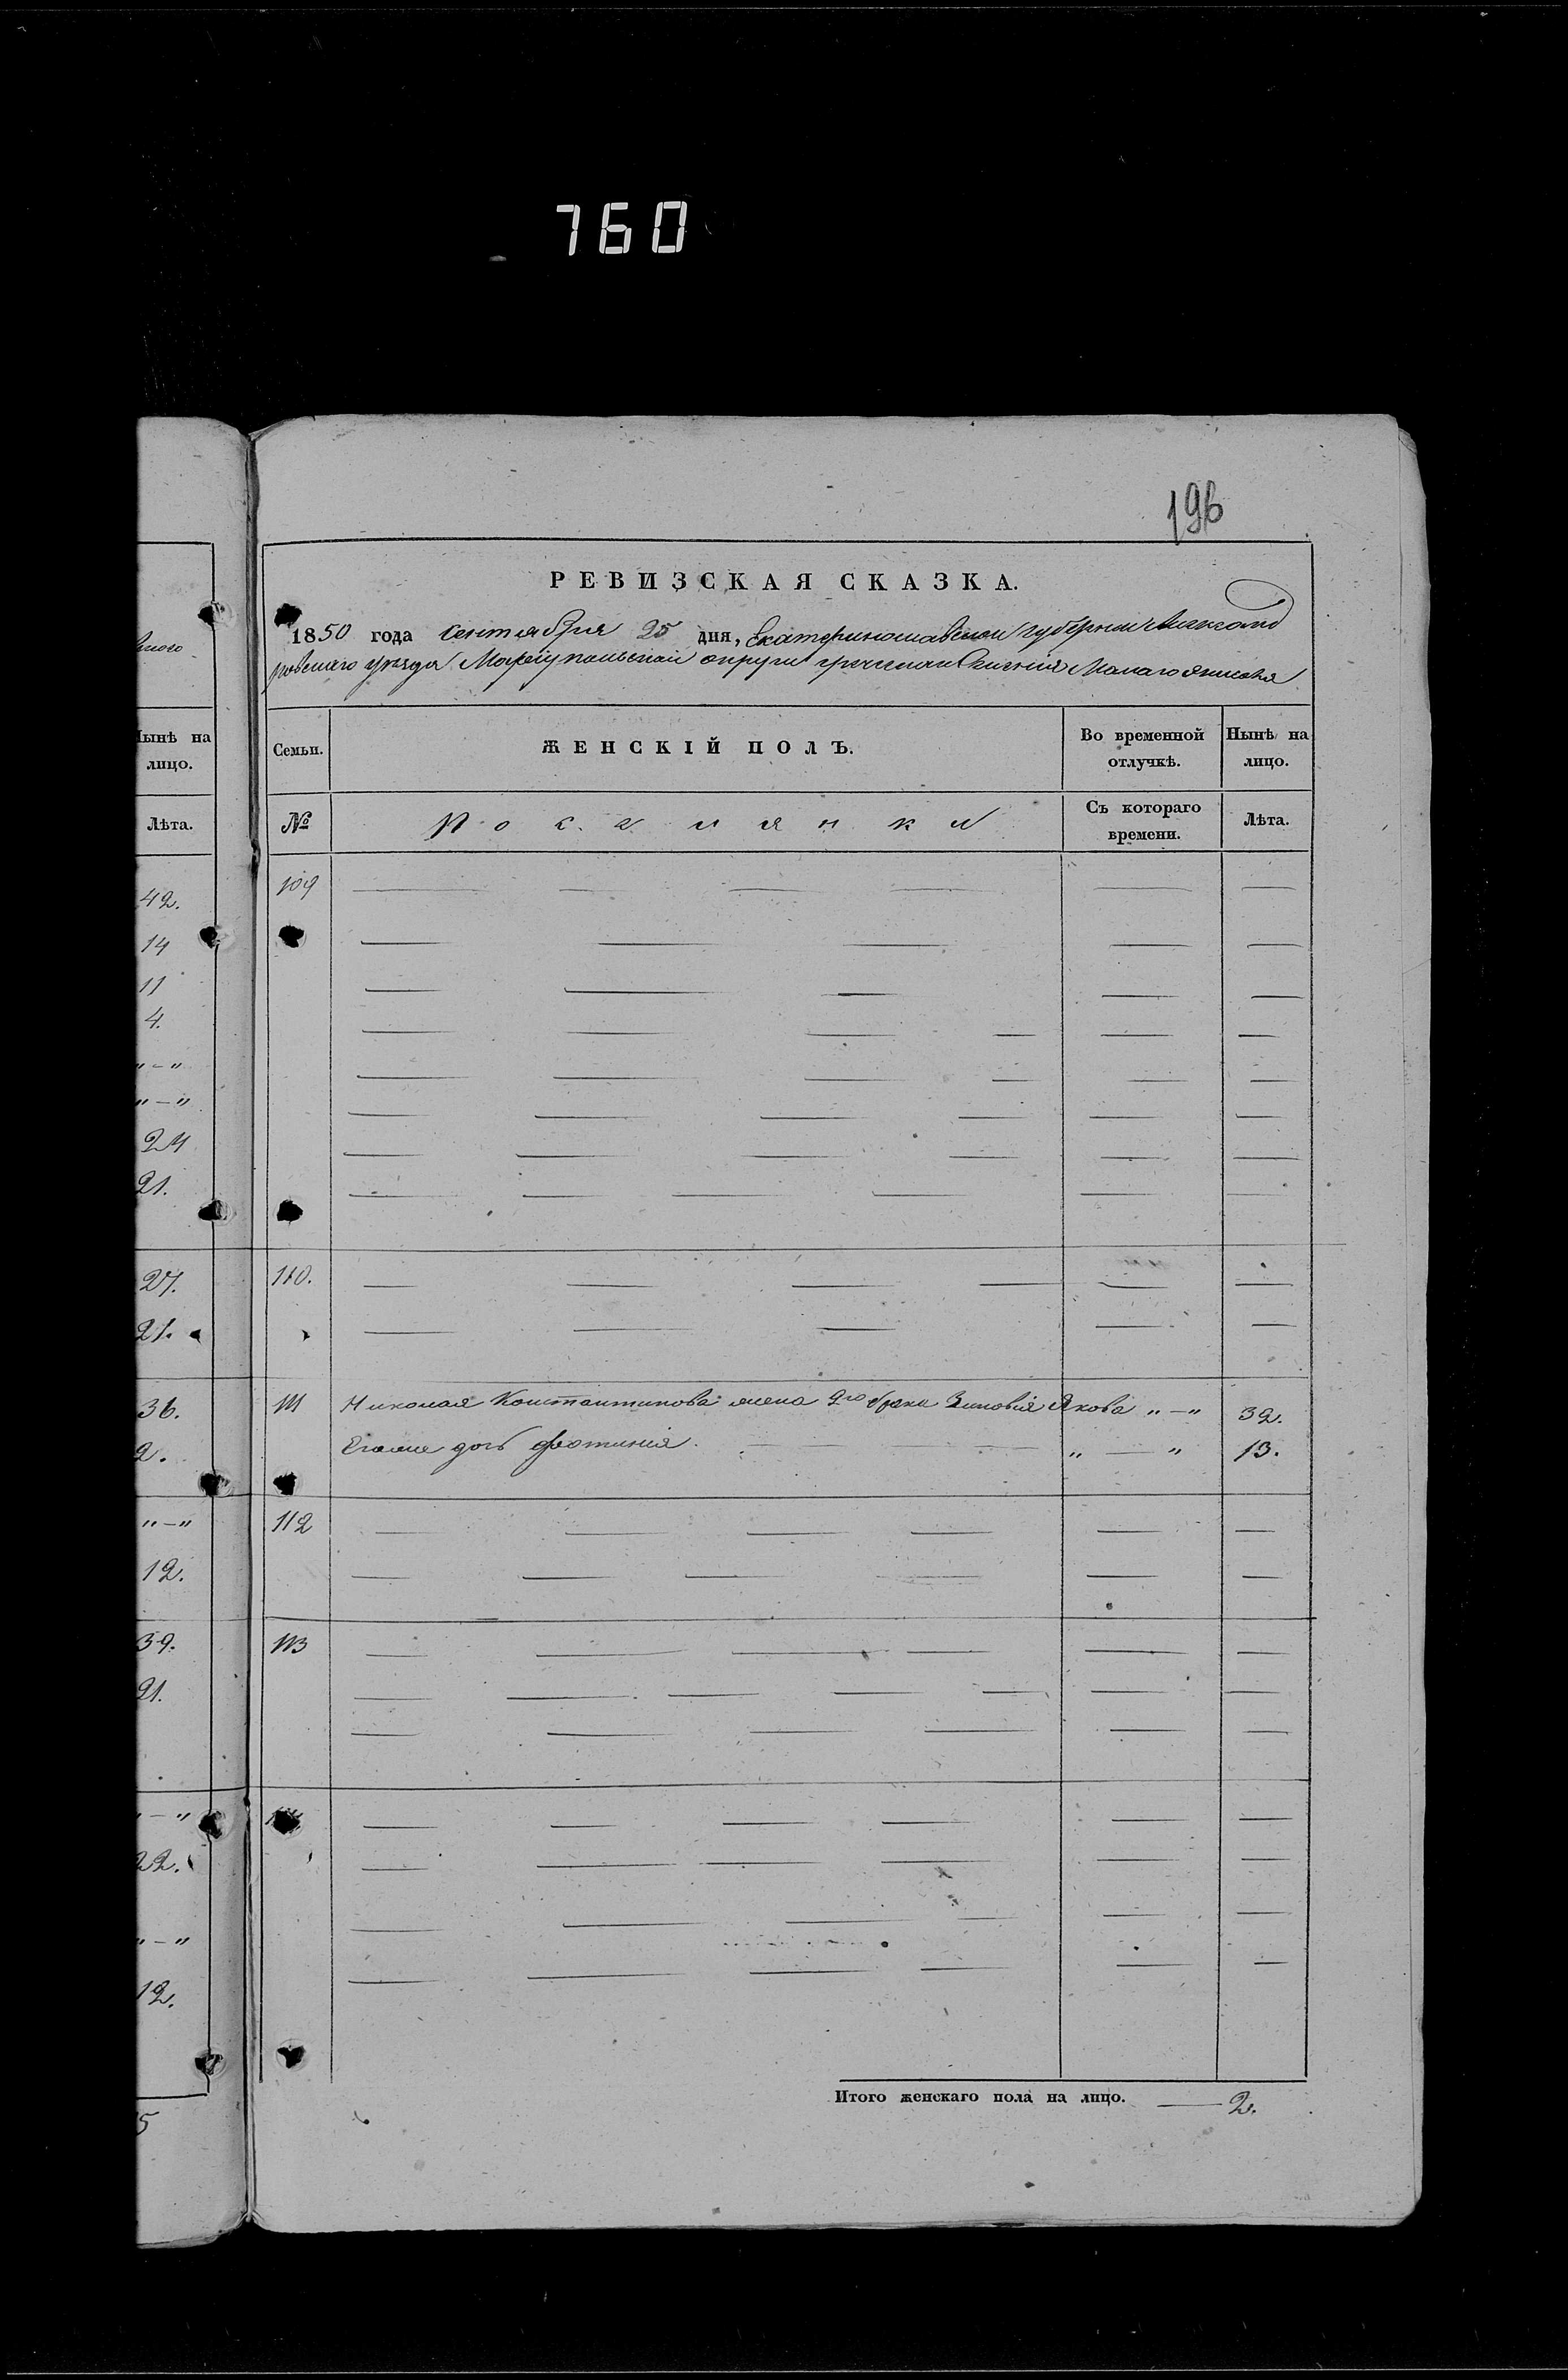 760
196
РЕВИЗСКАЯ СКАЗКА.
1850 года Сентября 25 дня, Екатеринославской губернии Александ
ровскаго уезда Мариупольской округи греческаго Селения Малаго Янисоля
Нынѣ на лицо.
Лѣта.
42.
14
11
4.
"-"
"-"
24
21.
27.
21.
36.
2.
"-"
12.
39.
21.
"-"
22.
"-"
12.
5
Семьи. ЖЕНСКІЙ ПОЛЪ. Во временной отлучкѣ. Нынѣ на лицо.
№ Поселянки Съ котораго времени. Лѣта.
109
110.
111 Николая Константинова жена 2го брака Зиновия Якова "-" 32.
Егоже дочь Фотиния. "-" 13.
112
113
Итого женскаго пола на лицо. 2.